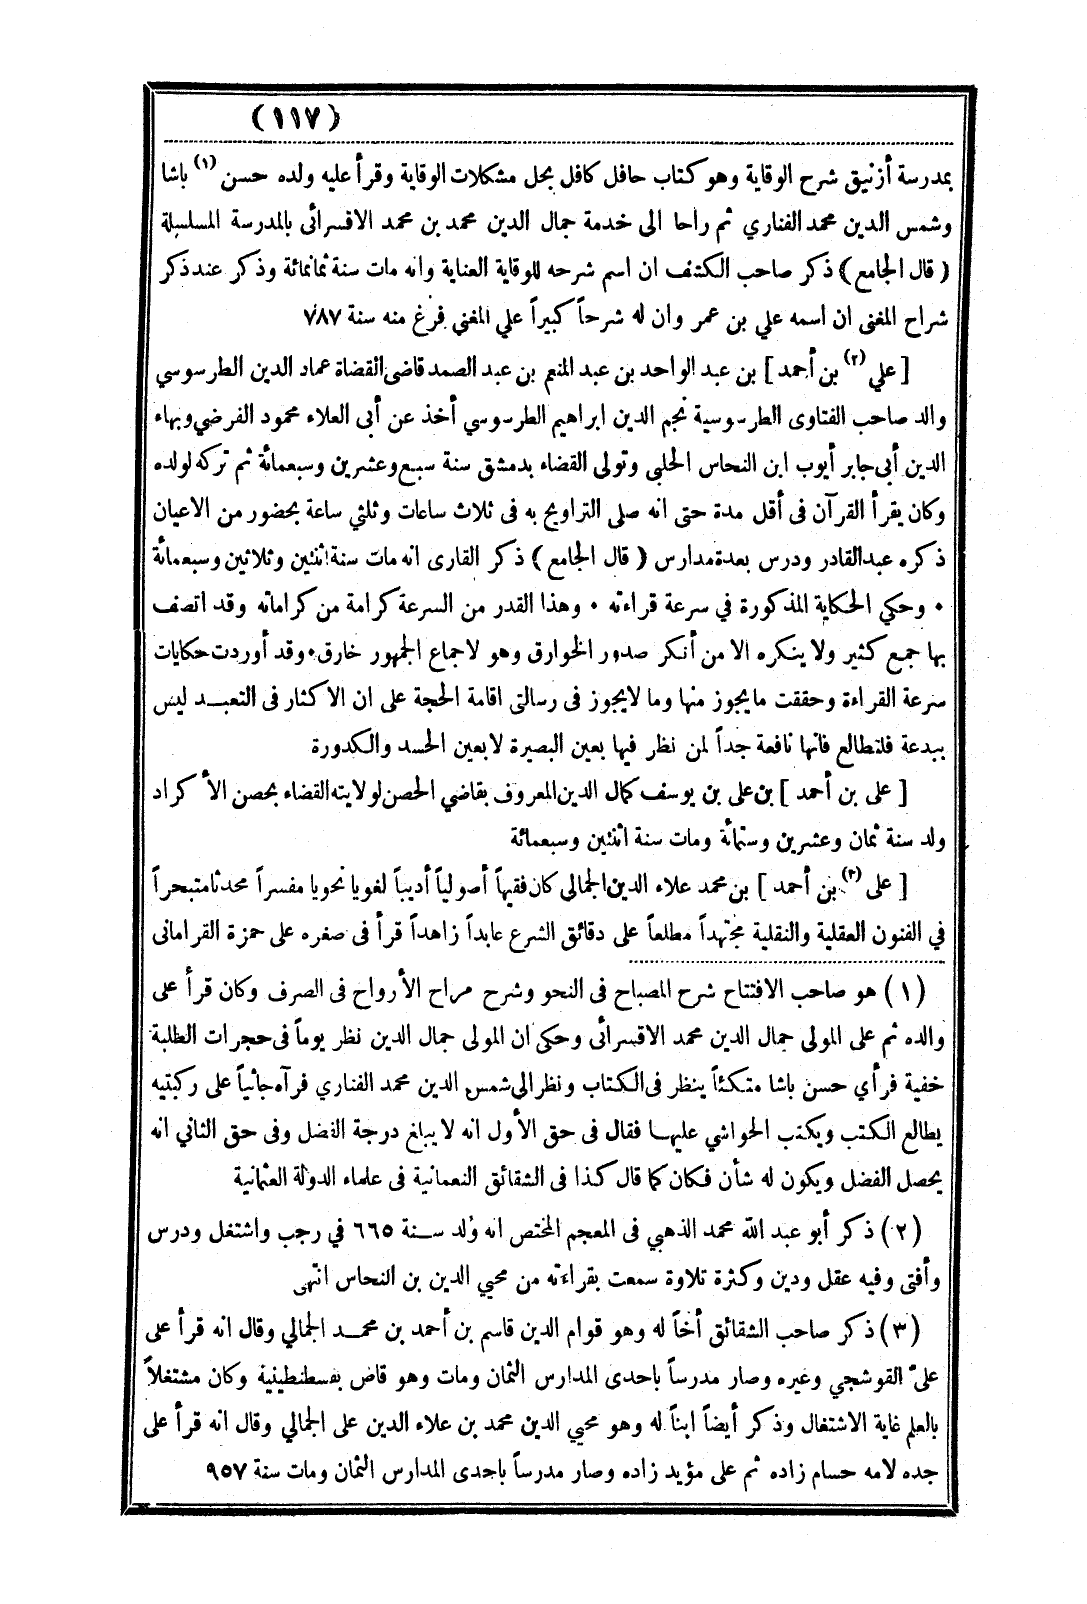 (١١٧)
بمدرسة أزنيق شرح الوقاية وهو كتاب حافل كافل بحل مشكلات الوقاية وقرأ عليه ولده حسن (١) باشا
وشمس الدين محمد الفناري ثم راحا الى خدمة جمال الدين محمد بن محمد الاقسرائى بالمدرسة المسلسلة
( قال الجامع ) ذكر صاحب الكشف ان اسم شرحه للوقاية العناية وانه مات سنة ثمانمائة وذكر عند ذكر
شراح المغنى ان اسمه علي بن عمر وان له شرحاً كبيراً علي المغني فرغ منه سنة ٧٨٧
[ علي (٢) بن أحمد ] بن عبد الواحد بن عبد المنعم بن عبد الصمد قاضى القضاة عماد الدين الطرسوسي
والد صاحب الفتاوى الطرسوسية نجم الدين ابراهيم الطرسوسي أخذ عن أبى العلاء محمود الفرضي وبهاء
الدين أبى جابر أيوب ابن النحاس الحلبي وتولى القضاء بدمشق سنة سبع وعشرين وسبعمائة ثم تركه لولده
وكان يقرأ القرآن فى أقل مدة حتى انه صلى التراويح به فى ثلاث ساعات وثلثي ساعة بحضور من الاعيان
ذكره عبد القادر ودرس بعدة مدارس ( قال الجامع ) ذكر القارى انه مات سنة اثنتين وثلاثين وسبعمائة
• وحكي الحكاية المذكورة في سرعة قراءته • وهذا القدر من السرعة كرامة من كراماته وقد اتصف
بها جمع كثير ولا ينكره الا من أنكر صدور الخوارق وهو لاجماع الجمهور خارق • وقد أوردت حكايات
سرعة القراءة وحققت ما يجوز منها وما لا يجوز فى رسالتى اقامة الحجة على ان الاكثار فى التعبد ليس
ببدعة فلتطالع فانها نافعة جداً لمن نظر فيها بعين البصيرة لا بعين الحسد والكدورة
[ على بن أحمد ] بن على بن يوسف كمال الدين المعروف بقاضي الحصن لولايته القضاء بحصن الأكراد
ولد سنة ثمان وعشرين وستمائة ومات سنة اثنتين وسبعمائة
[ على (٣) بن أحمد ] بن محمد علاء الدين الجمالى كان فقيهاً أصولياً أديباً لغويا نحويا مفسراً محدثا متبحراً
في الفنون العقلية والنقلية مجتهداً مطلعاً على دقائق الشرع عابداً زاهداً قرأ فى صغره على حمزة القرامانى
(١) هو صاحب الافتتاح شرح المصباح فى النحو وشرح مراح الأرواح فى الصرف وكان قرأ على
والده ثم على المولى جمال الدين محمد الاقسرائى وحكى ان المولى جمال الدين نظر يوماً فى حجرات الطلبة
خفية فرأي حسن باشا متكئاً ينظر فى الكتاب ونظر الى شمس الدين محمد الفناري فرآه جاثياً على ركبتيه
يطالع الكتب ويكتب الحواشي عليها فقال فى حق الأول انه لا يبلغ درجة الفضل وفى حق الثاني انه
يحصل الفضل ويكون له شأن فكان كما قال كذا فى الشقائق النعمانية فى علماء الدولة العثمانية
(٢) ذكر أبو عبد الله محمد الذهبي فى المعجم المختص انه وُلد سنة ٦٦٥ في رجب واشتغل ودرس
وأفتى وفيه عقل ودين وكثرة تلاوة سمعت بقراءته من محيي الدين بن النحاس انتهى
(٣) ذكر صاحب الشقائق أخاً له وهو قوام الدين قاسم بن أحمد بن محمد الجمالي وقال انه قرأ على
علىّ القوشجي وغيره وصار مدرساً باحدى المدارس الثمان ومات وهو قاض بقسطنطينية وكان مشتغلاً
بالعلم غاية الاشتغال وذكر أيضاً ابناً له وهو محيي الدين محمد بن علاء الدين على الجمالي وقال انه قرأ على
جده لامه حسام زاده ثم على مؤيد زاده وصار مدرساً باحدى المدارس الثمان ومات سنة ٩٥٧